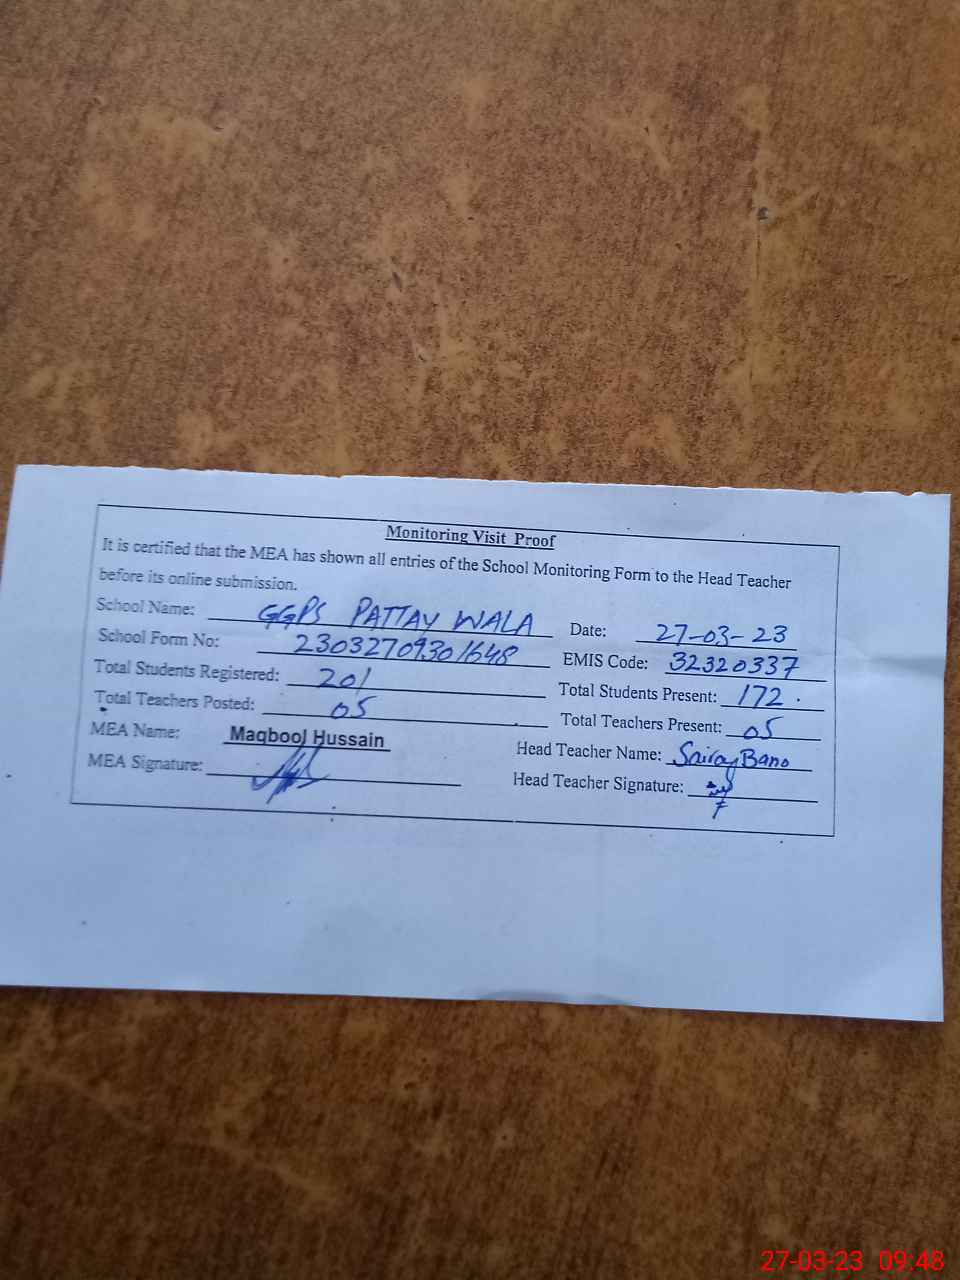 Monitoring Visit Proof
It is certified that the MEA has shown all entries of the School Monitoring Form to the Head Teacher
before its online submission.
School Name: GGPS PATTAY WALA Date: 27-03-23
School Form No: 23032709301648 EMIS Code: 32320337
Total Students Registered: 201 Total Students Present: 172
Total Teachers Posted: 05 Total Teachers Present: 05
MEA Name: Maqbool Hussain Head Teacher Name: Bano
MEA Signature: Head Teacher Signature:
27-03-23 09:48